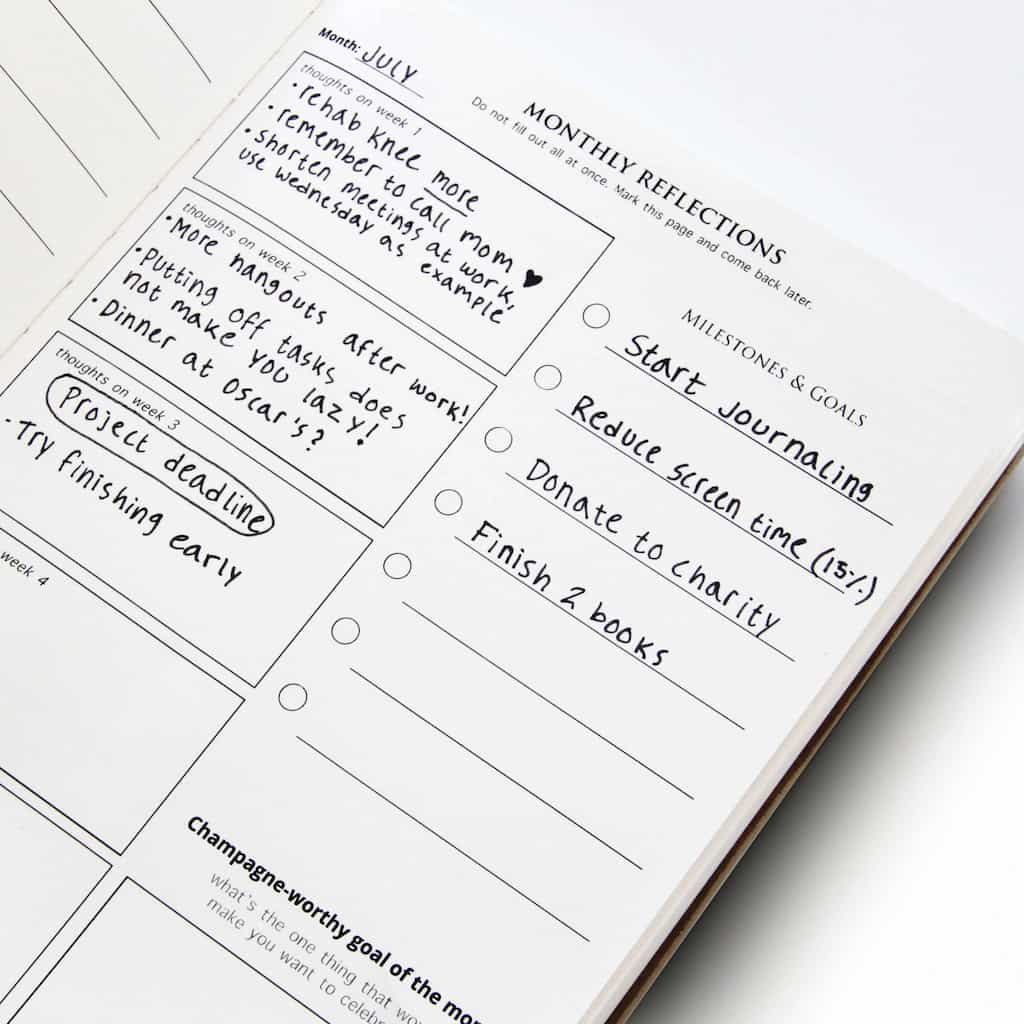 Month: JULY
MONTHLY REFLECTIONS
Do not fill out all at once. Mark this page and come back later.
thoughts on week 1
• rehab knee more
• remember to call mom ♥
• shorten meetings at work,
use wednesday as example
thoughts on week 2
• More hangouts after work!
• Putting off tasks does
not make you lazy!
• Dinner at Oscar's?
thoughts on week 3
Project deadline
• Try finishing early
week 4
MILESTONES & GOALS
Start journaling
Reduce screen time (15%)
Donate to charity
Finish 2 books
Champagne-worthy goal of the
what's the one thing that
make you want to